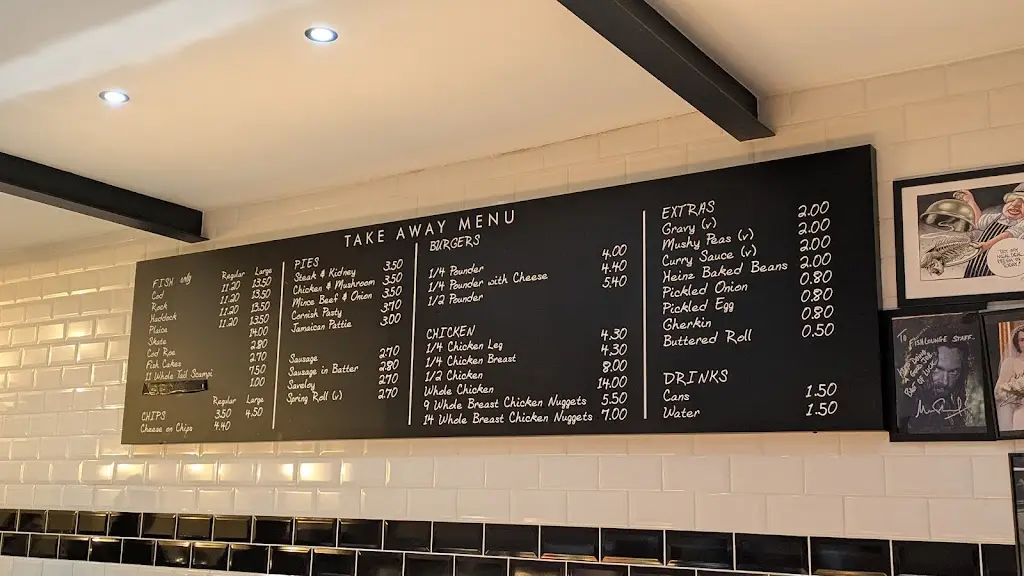 TAKE AWAY MENU
FISH only Regular Large
Cod 11.20 13.50
Rock 11.20 13.50
Haddock 11.20 13.50
Plaice 11.20 13.50
Skate 14.00
Cod Roe 2.80
Fish Cakes 2.70
11 Whole Tail Scampi 7.50
1.00
Regular Large
CHIPS 3.50 4.50
Cheese on Chips 4.40
PIES
Steak & Kidney 3.50
Chicken & Mushroom 3.50
Mince Beef & Onion 3.50
Cornish Pasty 3.70
Jamaican Pattie 3.00
Sausage 2.70
Sausage in Batter 2.80
Saveloy 2.70
Spring Roll (v) 2.70
BURGERS
1/4 Pounder 4.00
1/4 Pounder with Cheese 4.40
1/2 Pounder 5.40
CHICKEN
1/4 Chicken Leg 4.30
1/4 Chicken Breast 4.30
1/2 Chicken 8.00
Whole Chicken 14.00
9 Whole Breast Chicken Nuggets 5.50
14 Whole Breast Chicken Nuggets 7.00
EXTRAS
Gravy (v) 2.00
Mushy Peas (v) 2.00
Curry Sauce (v) 2.00
Heinz Baked Beans 2.00
Pickled Onion 0.80
Pickled Egg 0.80
Gherkin 0.80
Buttered Roll 0.50
DRINKS
Cans 1.50
Water 1.50
TO FISH LOUNGE STAFF